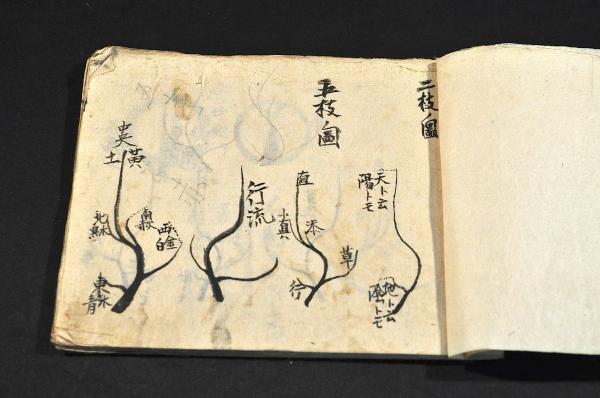 二枝ノ圖
天ト云
陽トモ
地ト云
陰トモ
五枝ノ圖
直
添
真
草
行
行流
中央
黄
土
南
西金
白
北水
黒
東木
青